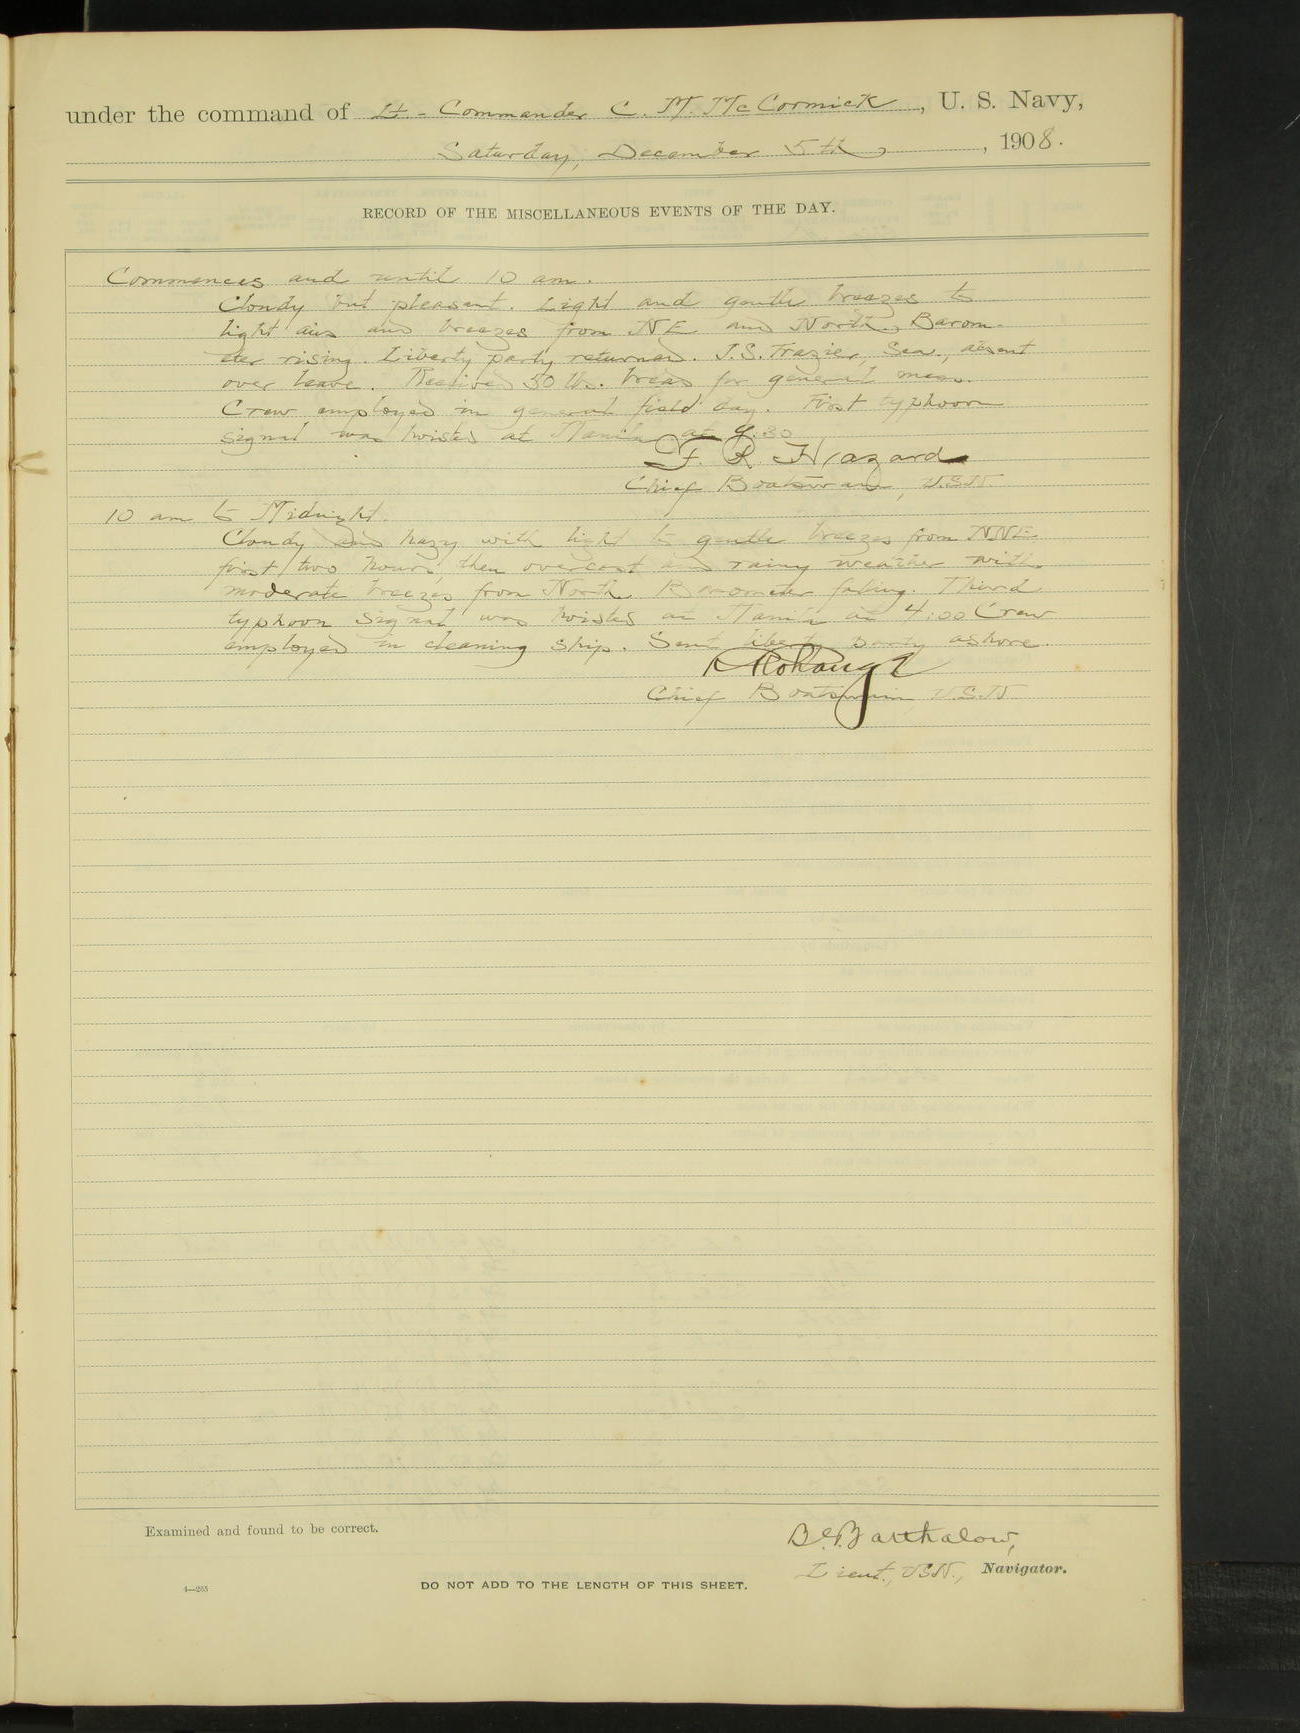 under the command of Lt-Commander C. M. McCormick, U. S. Navy,
Saturday, December 5th, 1908.
RECORD OF THE MISCELLANEOUS EVENTS OF THE DAY.
Commences and until 10 am.
Cloudy but pleasant. Light and gentle breezes to
light airs and breezes from NE and North. Barom-
eter rising. Liberty party returned. J.S. Frazier, Sea., absent
over leave. Received 50 lbs. bread for general mess.
Crew employed in general field day. First typhoon
signal was hoisted at Manila at 9.30
F. R. Hazard
Chief Boatswain, U.S.N
10 am to Midnight.
Cloudy and hazy with light to gentle breezes from NNE
first two hours, then overcast and rainy weather with
moderate breezes from North. Barometer falling. Third
typhoon signal was hoisted at Manila at 4:00 Crew
employed in cleaning ship. Sent liberty party ashore.
Rohange
Chief Boatswain, U.S.N
Examined and found to be correct.
Barthalow,
Lieut., USN., Navigator.
4—265
DO NOT ADD TO THE LENGTH OF THIS SHEET.